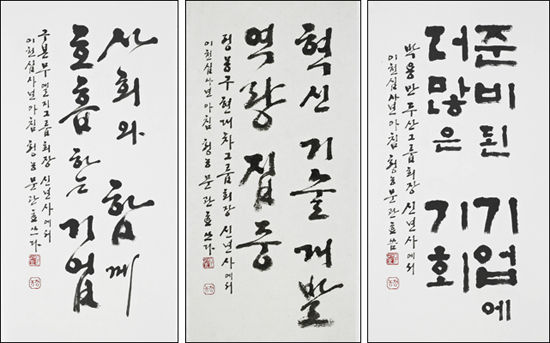 사회와 함께
호흡하는 기업
구본무 엘지그룹 회장 신년사에서
이천십사년 아침 청농 문관효 쓰다
혁신 기술 개발
역량 집중
정몽구 현대차그룹 회장 신년사에서
이천십사년 아침 청농 문관효 쓰다
준비된 기업에
더 많은 기회
박용만 두산그룹회장 신년사에서
이천십사년 아침 청농 문관효 씀